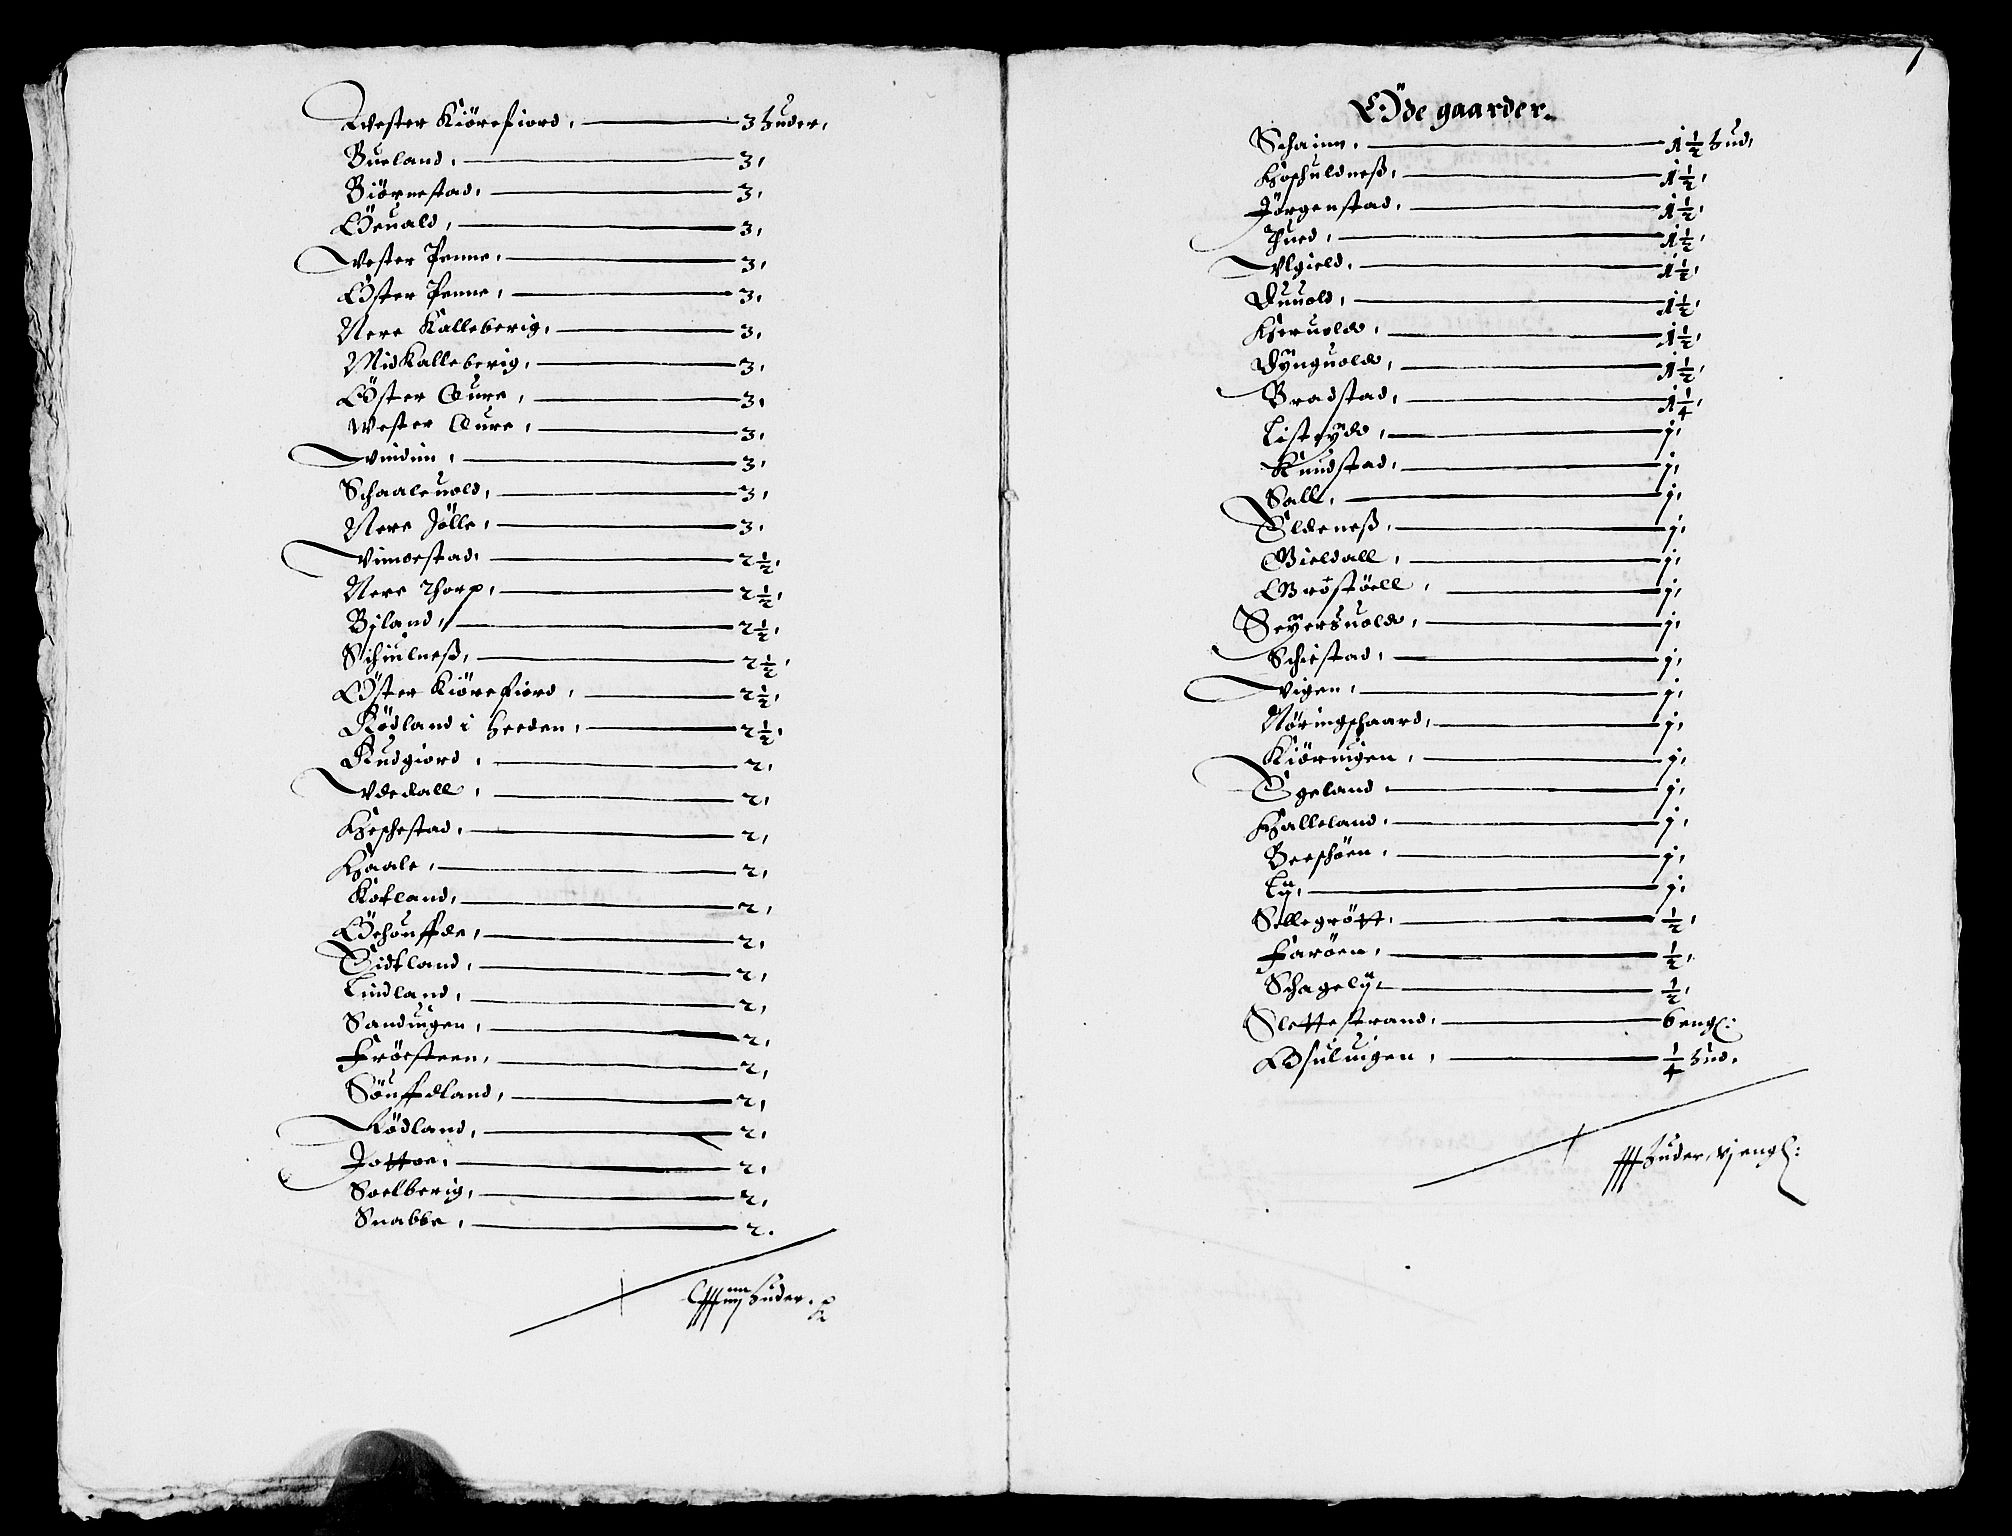 Wester Kiörefiord, 3 huder,
Bueland, 3,
Biörnestad, 3,
Öeuald, 3,
Wester Penne, 3,
Öster Penne, 3,
Nere Kalleberig, 3,
Mid Kalleberig, 3,
Öster Aure, 3,
Wester Aure, 3,
3,
Schaaleuold, 3,
Nere Jölle, 3,
Vimoestad, 2 1/2,
Nere Thorp, 2 1/2,
Byland, 2 1/2,
Schiulneß, 2 1/2,
Öster Kiörefiord, 2 1/2,
Rödland i heeden, 2 1/2,
Rudgiord, 2,
Vdedall, 2,
Heschestad, 2,
Haale, 2,
Kotland, 2,
Öehouffde, 2,
Eidtland, 2,
Lindland, 2,
Sanduigen, 2,
Fröesteen, 2,
Söuffdland, 2,
Rödland, 2,
Jottoe, 2,
Soelberig, 2,
Snabbe, 2.
huder.
7
Öde gaarder.
Schainn, 1 1/2 hud,
Hoschuldneß, 1 1/2,
Jörgenstad, 1 1/2,
Tued, 1 1/2,
Vlgield, 1 1/2,
Duuold, 1 1/2,
Heruold, 1 1/2,
Dynguold, 1 1/2,
Bradstad, 1 1/4,
Listeydd, j,
Knudstad, j,
Sall, j,
Eldeneß, j,
Gieldall, j,
Gröstöell, j,
Seyersuold, j,
Schiestad, j,
Vigen, j,
Nöringschaard, j,
Kiöruigen, j,
Egeland, j,
Halleland, j,
Beeschöen, j,
Ly, j,
Sellegrött, 1/2,
Faröen, 1/2,
Schagely, 1/2,
Slettestrand, 6 engl:
Osuluigen, 1/4 hud.
huder, vj engl: